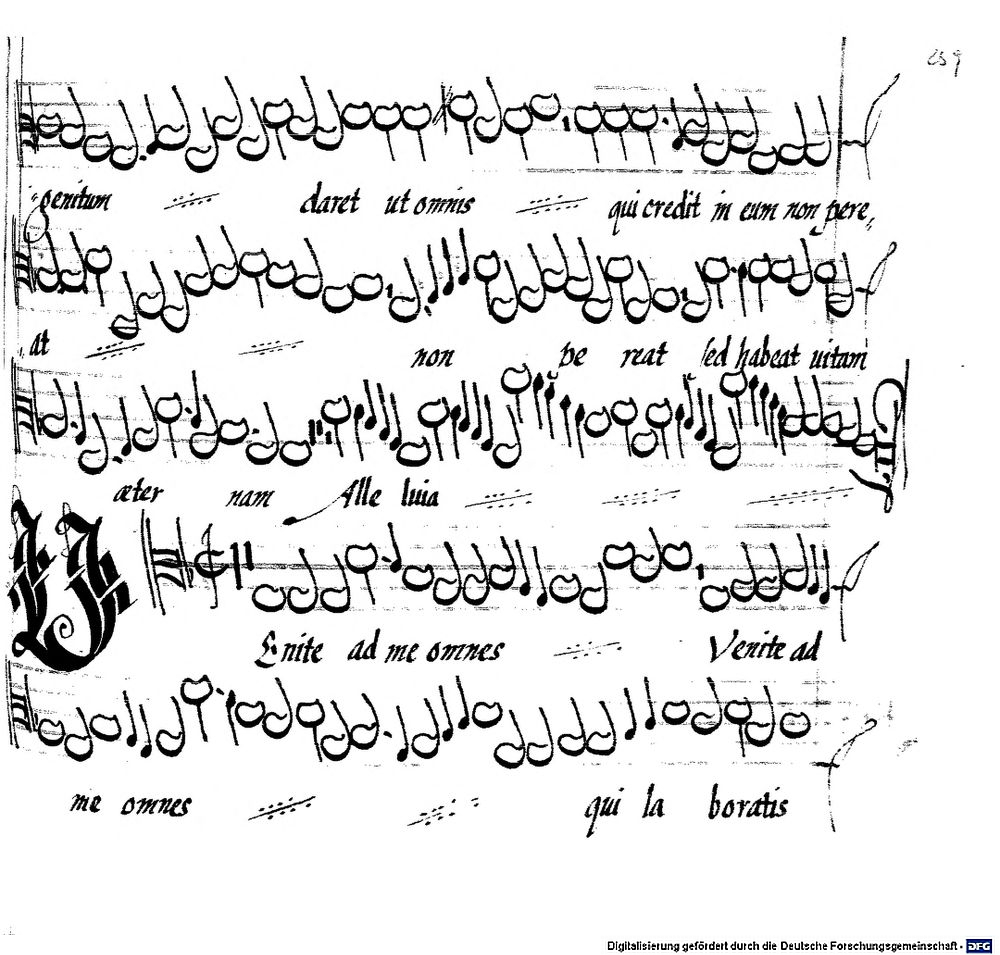 259
genitum daret ut omnis qui credit in eum non pere,
at non pe reat sed habeat uitam
æter nam Alle luia
VEnite ad me omnes Venite ad
me omnes qui la boratis
Digitalisierung gefördert durch die Deutsche Forschungsgemeinschaft - DFG